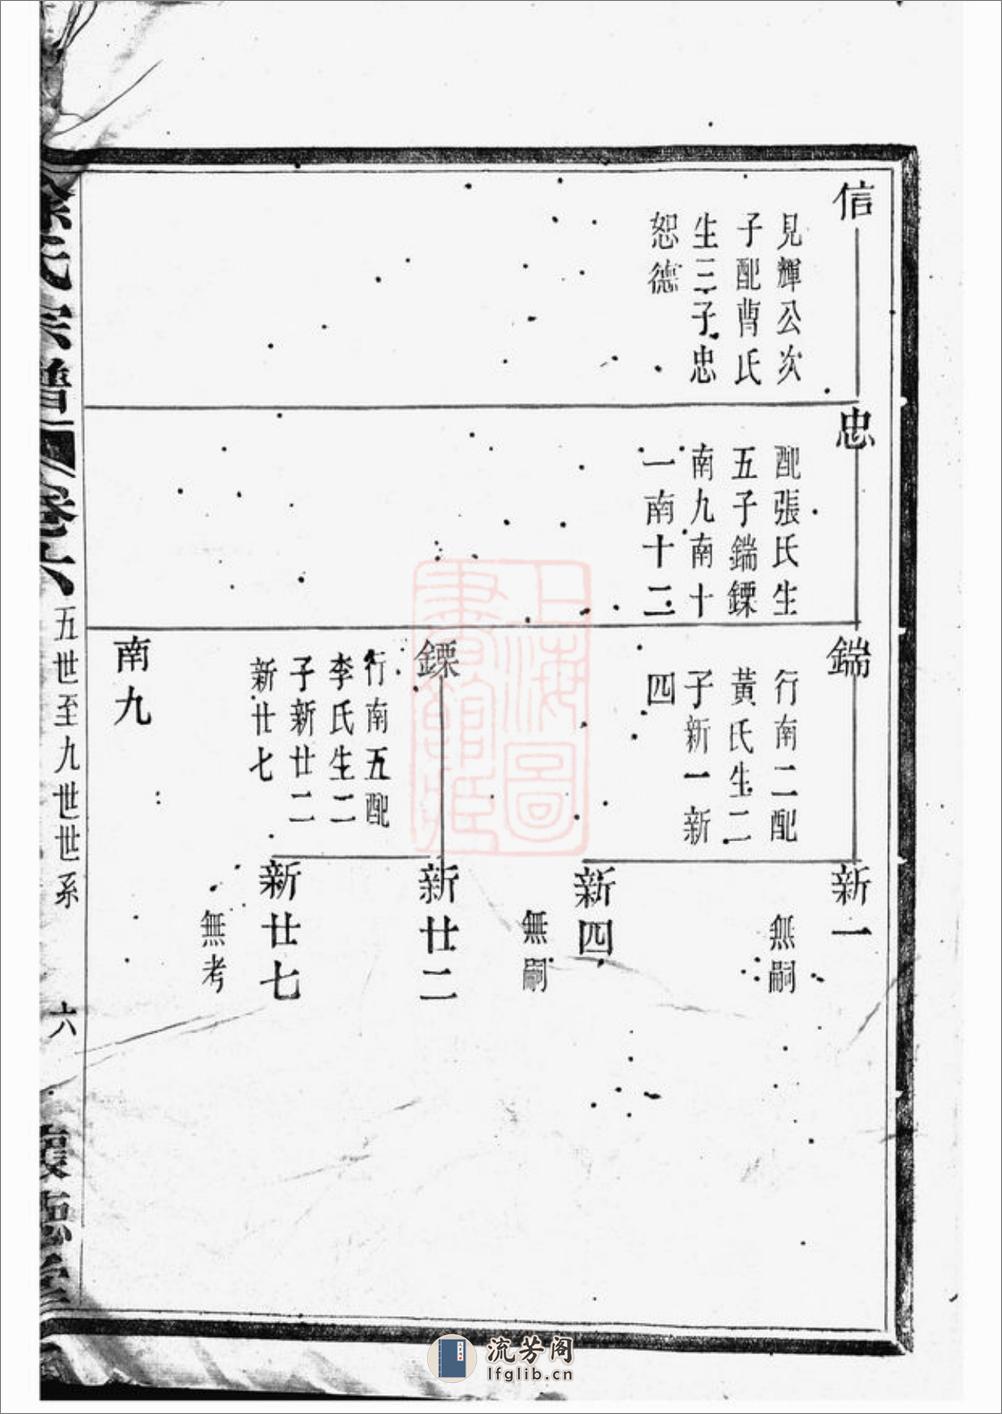 信
見輝公次
子配曹氏
生三子忠
恕德
忠
配張氏生
五子鍴鏢
南九南十
一南十二
鍴
行南二配
黃氏生二
子新一新
四
鏢
行南五配
李氏生二
子新廿二
新廿七
南九
新一
無嗣
新四
無嗣
新廿二
新廿七
無考
氏宗譜
卷六
五世至九世世系
六
德堂
上海圖書館藏
流芳阁
lfglib.cn